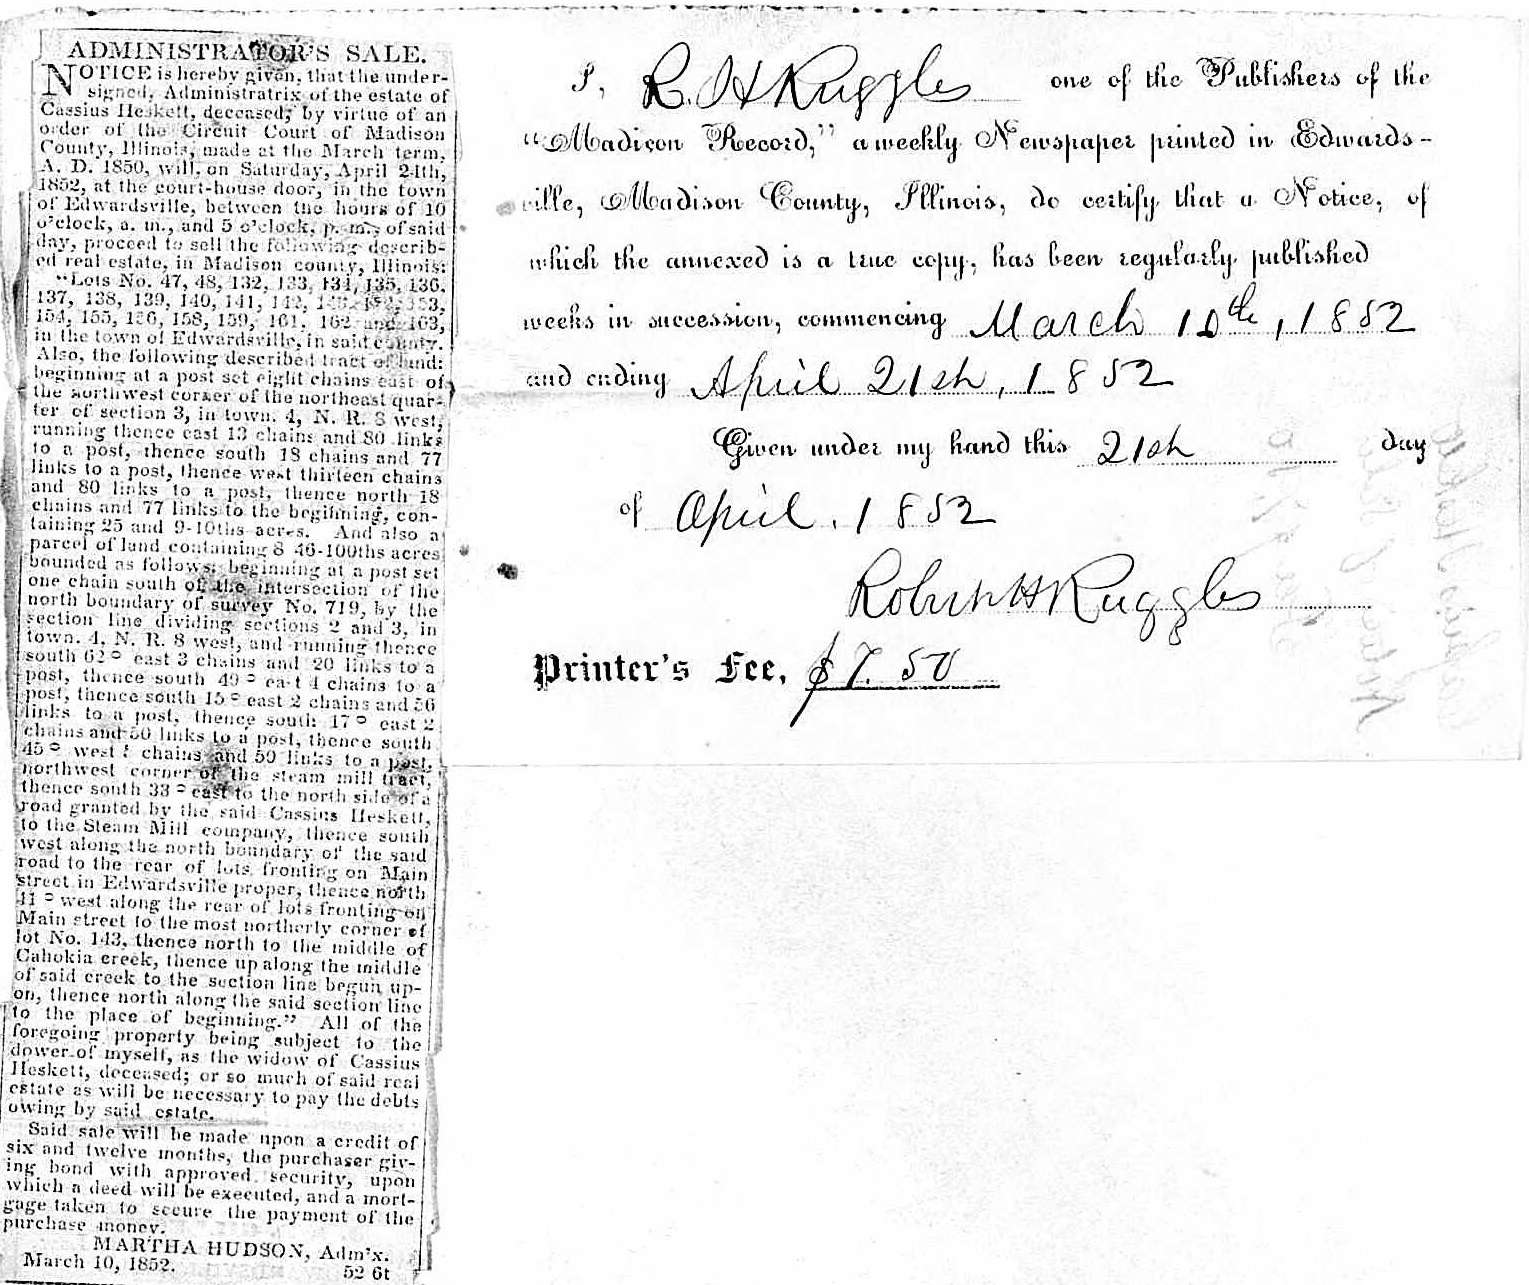 ADMINISTRATOR'S SALE.
NOTICE is hereby given, that the under-
signed, Administratrix of the estate of
Cassius Heskett, deceased, by virtue of an
order of the Circuit Court of Madison
County, Illinois, made at the March term,
A. D. 1850, will, on Saturday, April 24th,
1852, at the court-house door, in the town
of Edwardsville, between the hours of 10
o'clock, a. m., and 5 o'clock, p. m., of said
day, proceed to sell the following describ-
ed real estate, in Madison county, Illinois:
"Lots No. 47, 48, 132, 133, 134, 135, 136,
137, 138, 139, 140, 141, 142, 153,
154, 155, 156, 158, 159, 161, 162 and 163,
in the town of Edwardsville, in said county.
Also, the following described tract of land:
beginning at a post set eight chains east of
the northwest corner of the northeast quar-
ter of section 3, in town. 4, N. R. 8 west,
running thence east 13 chains and 80 links
to a post, thence south 18 chains and 77
links to a post, thence west thirteen chains
and 80 links to a post, thence north 18
chains and 77 links to the beginning, con-
taining 25 and 9-10ths acres. And also a
parcel of land containing 8 46-100ths acres
bounded as follows: beginning at a post set
one chain south of the intersection of the
north boundary of survey No. 719, by the
section line dividing sections 2 and 3, in
town. 4, N. R. 8 west, and running thence
south 62° east 3 chains and 20 links to a
post, thence south 49° east 4 chains to a
post, thence south 15° east 2 chains and 56
links to a post, thence south 17° east 2
chains and 50 links to a post, thence south
45° west chains and 50 links to a post,
northwest corner of the steam mill tract,
thence south 33° east to the north side of a
road granted by the said Cassius Heskett,
to the Steam Mill company, thence south
west along the north boundary of the said
road to the rear of lots fronting on Main
street in Edwardsville proper, thence north
41° west along the rear of lots fronting on
Main street to the most northerly corner of
lot No. 143, thence north to the middle of
Cahokia creek, thence up along the middle
of said creek to the section line begun up-
on, thence north along the said section line
to the place of beginning." All of the
foregoing property being subject to the
dower of myself, as the widow of Cassius
Heskett, deceased; or so much of said real
estate as will be necessary to pay the debts
owing by said estate.
Said sale will be made upon a credit of
six and twelve months, the purchaser giv-
ing bond with approved security, upon
which a deed will be executed, and a mort-
gage taken to secure the payment of the
purchase money.
MARTHA HUDSON, Adm'x.
March 10, 1852. 52 6t
I, R. H Ruggles one of the Publishers of the
"Madison Record," a weekly Newspaper printed in Edwards-
ville, Madison County, Illinois, do certify that a Notice, of
which the annexed is a true copy, has been regularly published
weeks in succession, commencing March 10th, 1852
and ending April 21st, 1852
Given under my hand this 21st day
of April, 1852
Robert H Ruggles
Printer's Fee, $7.50